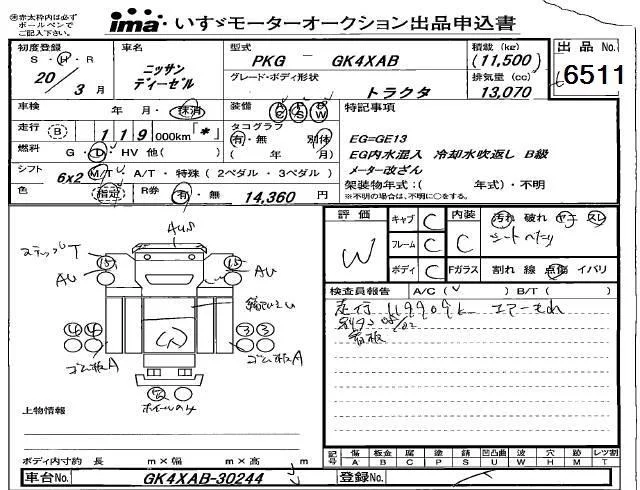 ※赤太枠内は必ず
ボールペンで
ご記入下さい。
ima いすゞモーターオークション出品申込書
初度登録
S・H・R
20/3月
車名
ニッサン
ディーゼル
型式
PKG － GK4XAB
グレード・ボディ形状
トラクタ
積載 (kg)
(11,500)
排気量 (cc)
13,070
出品No.
6511
車検 年・月・抹消
装備 AC PS PW
特記事項
走行 B 119 000km「*」
タコグラフ
有・無 別体
( 年 月)
燃料 G・D・HV 他( )
EG=GE13
EG内水混入 冷却水吹返し B級
メーター改ざん
シフト 6x2 M/T A/T・特殊(2ペダル・3ペダル)
架装物年式:( 年式)・不明
※不明の場合は、不明に○をする。
色 指定 R券 有・無 14,360 円
評価
W
キャブ C
フレーム C
ボディ C
内装
C
汚れ 破れ ヤニ スレ
シートへたり
Fガラス 割れ 線 点傷 イバリ
検査員報告 A/C( ) B/T( )
走行
看板
ステップ T
AU
AU
ゴム板A
ゴム板A
ホイールのみ
上物情報
ボディ内寸約 長 m×幅 m×高 m
記号 傷A 板金B 腐C 塗P 錆S 凹凸曲U 波W 穴H 跡M レツ割T
車台No. GK4XAB-30244
登録No.